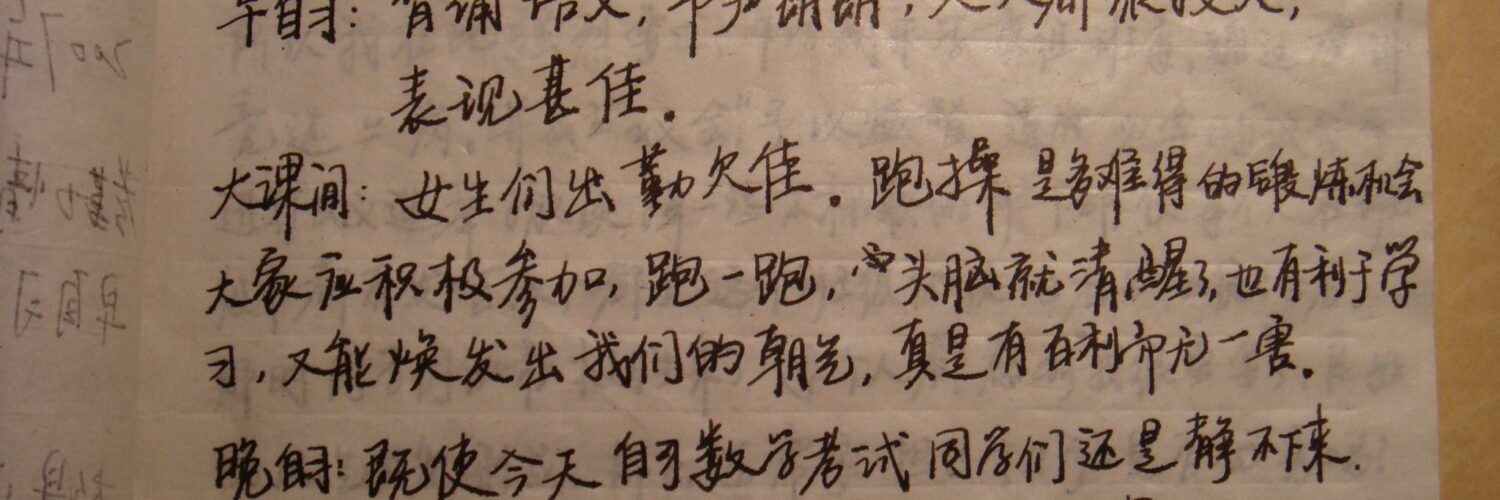 午自习：背诵语文，书声朗朗，人人都很投入，
表现甚佳。
大课间：女生们出勤欠佳。跑操是多难得的锻炼机会
大家应积极参加，跑一跑，头脑就清醒了，也有利于学
习，又能焕发出我们的朝气，真是有百利而无一害。
晚自习：既使今天自习数学考试同学们还是静不下来.